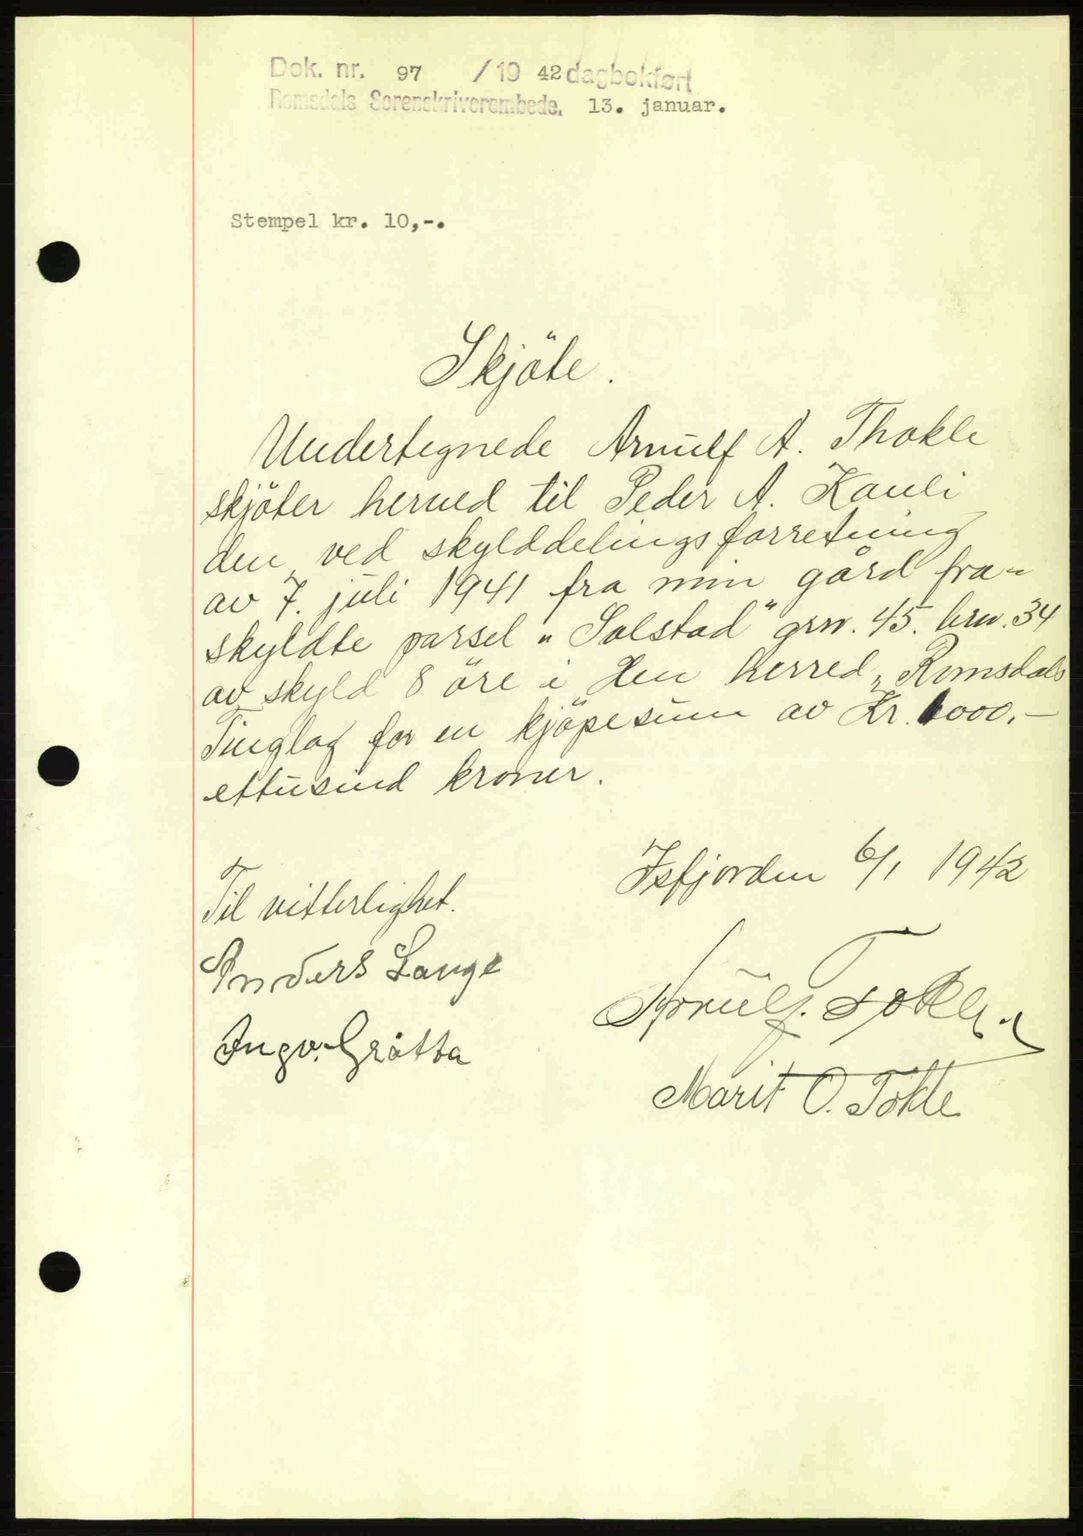 Dok. nr. 97 /19 42 dagbokført
Romsdals Sorenskriverembede, 13. januar.
Stempel kr. 10,-.
Skjöte.
Undertegnede Arnulf A. Thokle
skjöter herved til Peder A. Kavli
den ved skylddelingsforretning
av 7. juli 1941 fra min gård fra-
skyldte parsel „Solstad" grn. 45. brn. 34
av skyld 8 öre i Hen herred, Romsdals
Tinglag for en kjöpesum av Kr. 1000.—
ettusind kroner.
Isfjorden 6/1 1942
Til vitterlighet.
Anders Lange
Arnulf. Tokle.
Ingv. Gråtta
Marit O. Tokle